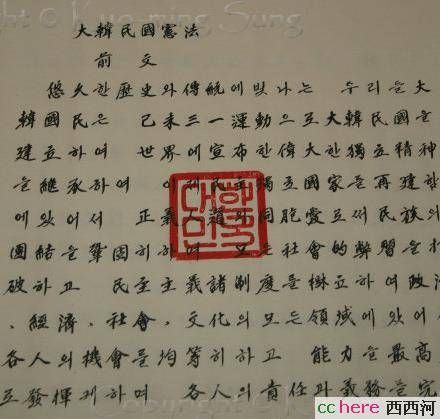 ght © Kuo-ming Sung
大韓民國憲法
前文
悠久한歷史와傳統에빛나는 우리들大
韓國民은 己未三一運動으로大韓民國을
建立하여 世界에宣布한偉大한獨立精神
을繼承하여 이제民主獨立國家를再建함
에있어서 正義人道와同胞愛로써民族의
團結을鞏固히하며 모든社會的弊習을打
破하고 民主主義諸制度를樹立하여政治
, 經濟, 社會, 文化의모든領域에있어서
各人의機會를均等히하고 能力을最高
로發揮케하며 各人의責任과義務를完
cchere 西西河